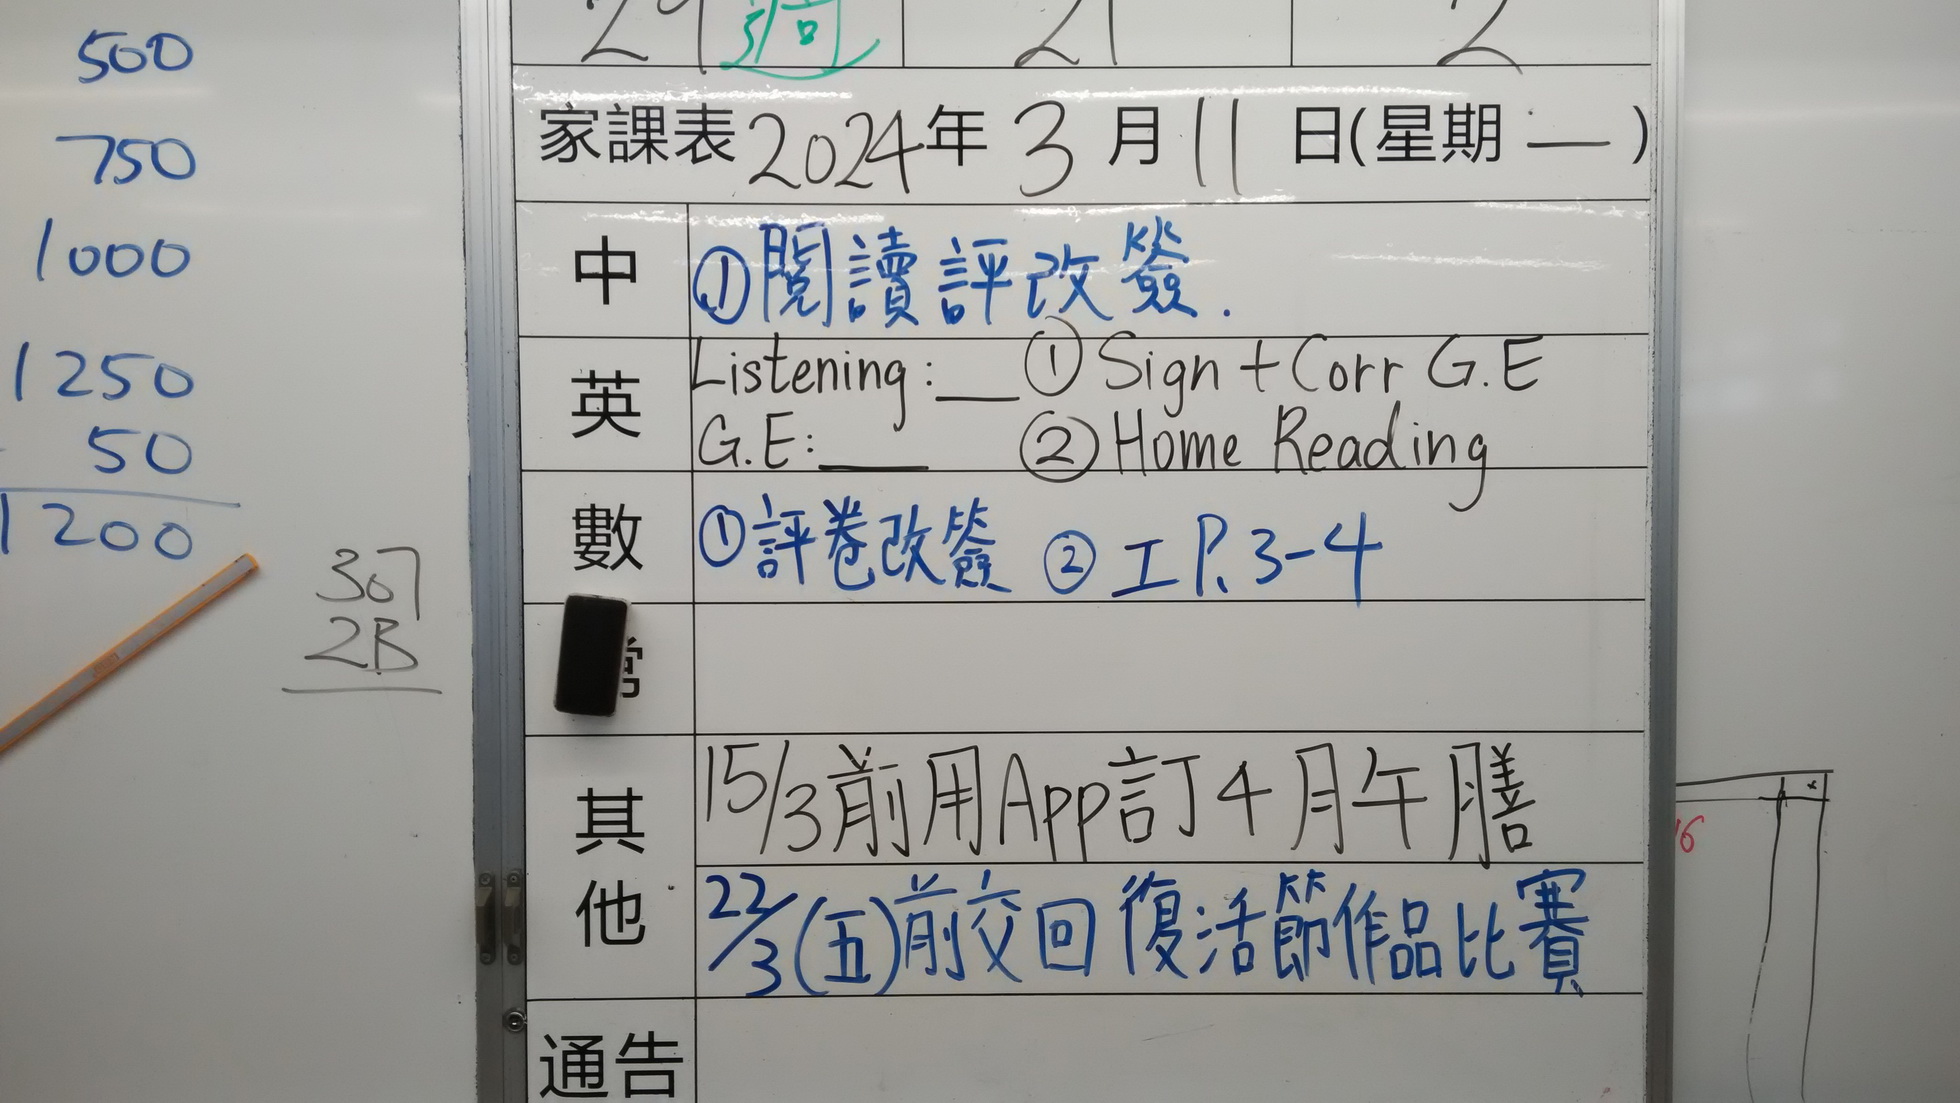 29 週 21 2
家課表 2024年 3 月 11 日(星期 一 )
中 ①閱讀評改簽.
英 Listening: __ ① Sign + Corr G.E
G.E: __ ② Home Reading
數 ①評卷改簽 ② 工 P. 3-4
其他 15/3前用App訂4月午膳
22/3(五)前交回復活節作品比賽
通告
500
750
1000
1250
50
1200
307
2B
16